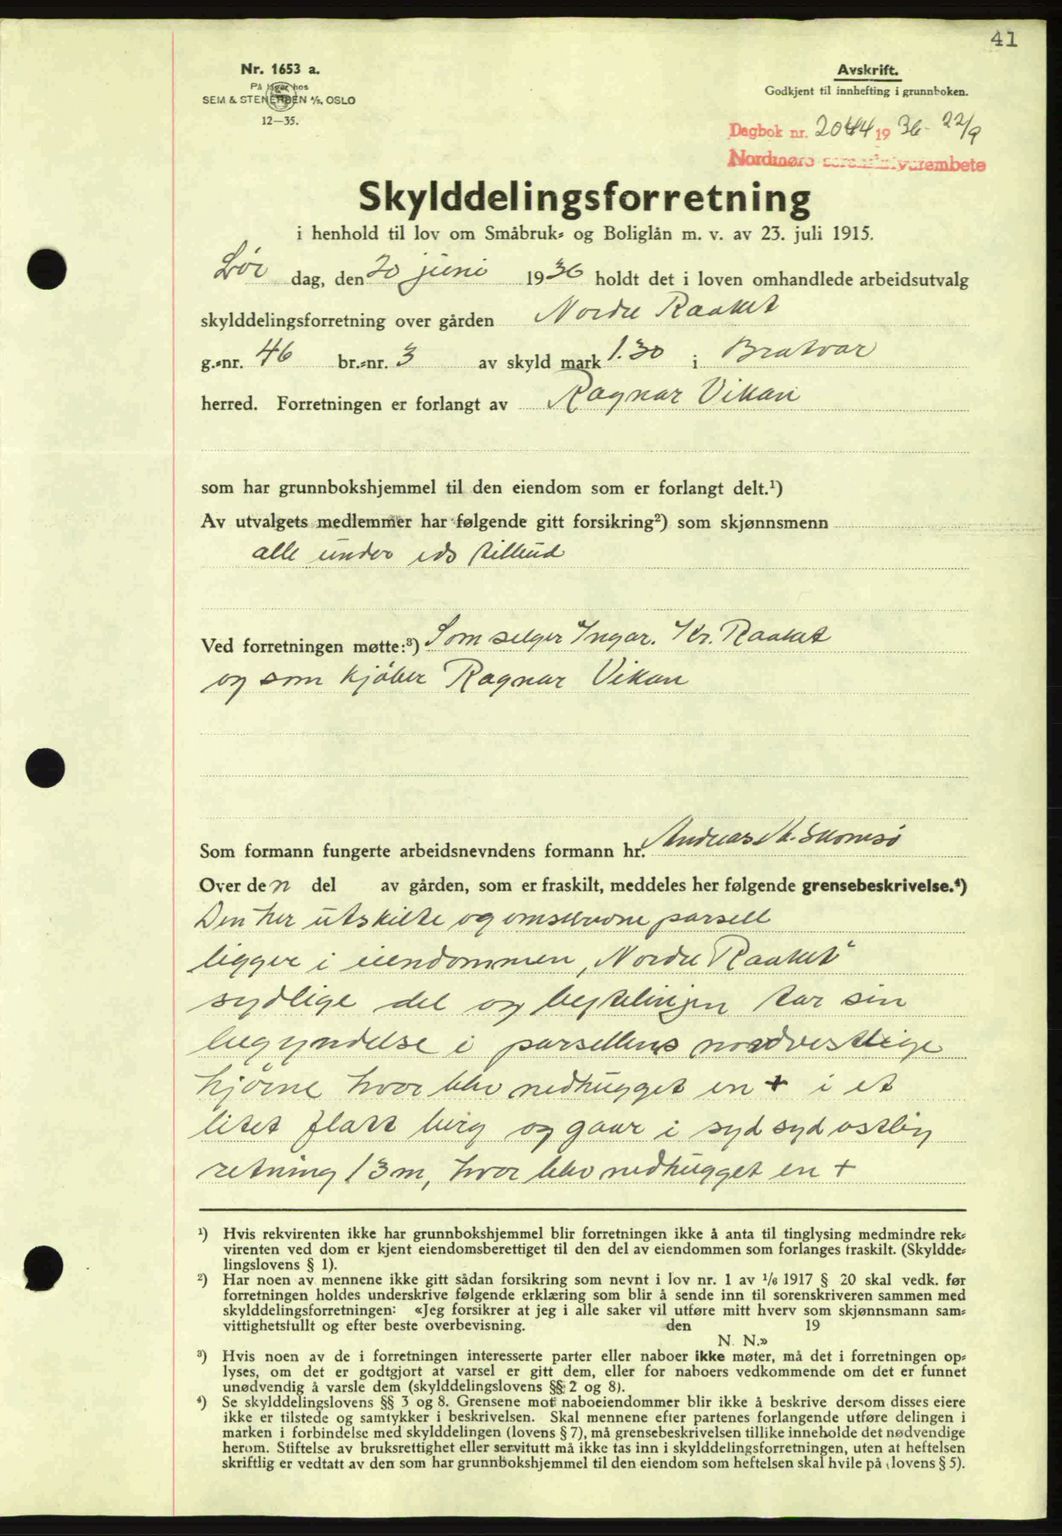 41
Nr. 1653 a.
På lager hos
SEM & STENERSEN A/S, OSLO
12—35.
Avskrift.
Godkjent til innhefting i grunnboken.
Dagbok nr. 2044 1936 - 22/9
Nordmøre sorenskriverembete
Skylddelingsforretning
i henhold til lov om Småbruk- og Boliglån m. v. av 23. juli 1915.
Lør dag, den 20 juni 1936 holdt det i loven omhandlede arbeidsutvalg
skylddelingsforretning over gården Nordre Raaket
g.-nr. 46 br.-nr. 3 av skyld mark 1.30 i Bratvær
herred. Forretningen er forlangt av Ragnar Vikan
som har grunnbokshjemmel til den eiendom som er forlangt delt.¹)
Av utvalgets medlemmer har følgende gitt forsikring²) som skjønnsmenn
alle under eds tilbud
Ved forretningen møtte:³) Som selger Ingar. Kr. Raaket
og som kjøber Ragnar Vikan
Som formann fungerte arbeidsnevndens formann hr. Andreas M. Skomsø
Over den del av gården, som er fraskilt, meddeles her følgende grensebeskrivelse.⁴)
Den her utskilte og omskrevne parsell
ligger i eiendommen „Nordre Raaket"
sydlige del og tar sin
begyndelse i parsellens nordvestlige
hjørne hvor blev nedhugget en + i et
litet flatt berg og gaar i syd syd ostlig
retning 13 m, hvor blev nedhugget en +
¹) Hvis rekvirenten ikke har grunnbokshjemmel blir forretningen ikke å anta til tinglysing medmindre rek-
virenten ved dom er kjent eiendomsberettiget til den del av eiendommen som forlanges fraskilt. (Skyldde-
lingslovens § 1).
²) Har noen av mennene ikke gitt sådan forsikring som nevnt i lov nr. 1 av 1/6 1917 § 20 skal vedk. før
forretningen holdes underskrive følgende erklæring som blir å sende inn til sorenskriveren sammen med
skylddelingsforretningen: «Jeg forsikrer at jeg i alle saker vil utføre mitt hverv som skjønnsmann sam-
vittighetsfullt og efter beste overbevisning. den 19
N. N.»
³) Hvis noen av de i forretningen interesserte parter eller naboer ikke møter, må det i forretningen op-
lyses, om det er godtgjort at varsel er gitt dem, eller for naboers vedkommende om det er funnet
unødvendig å varsle dem (skylddelingslovens §§ 2 og 8).
⁴) Se skylddelingslovens §§ 3 og 8. Grensene mot naboeiendommer blir ikke å beskrive dersom disses eiere
ikke er tilstede og samtykker i beskrivelsen. Skal mennene efter partenes forlangende utføre delingen i
marken i forbindelse med skylddelingen (lovens § 7), må grensebeskrivelsen tillike inneholde det nødvendige
herom. Stiftelse av bruksrettighet eller servitutt må ikke tas inn i skylddelingsforretningen, uten at heftelsen
skriftlig er vedtatt av den som har grunnbokshjemmel til den eiendom som heftelsen skal hvile på (lovens § 5).